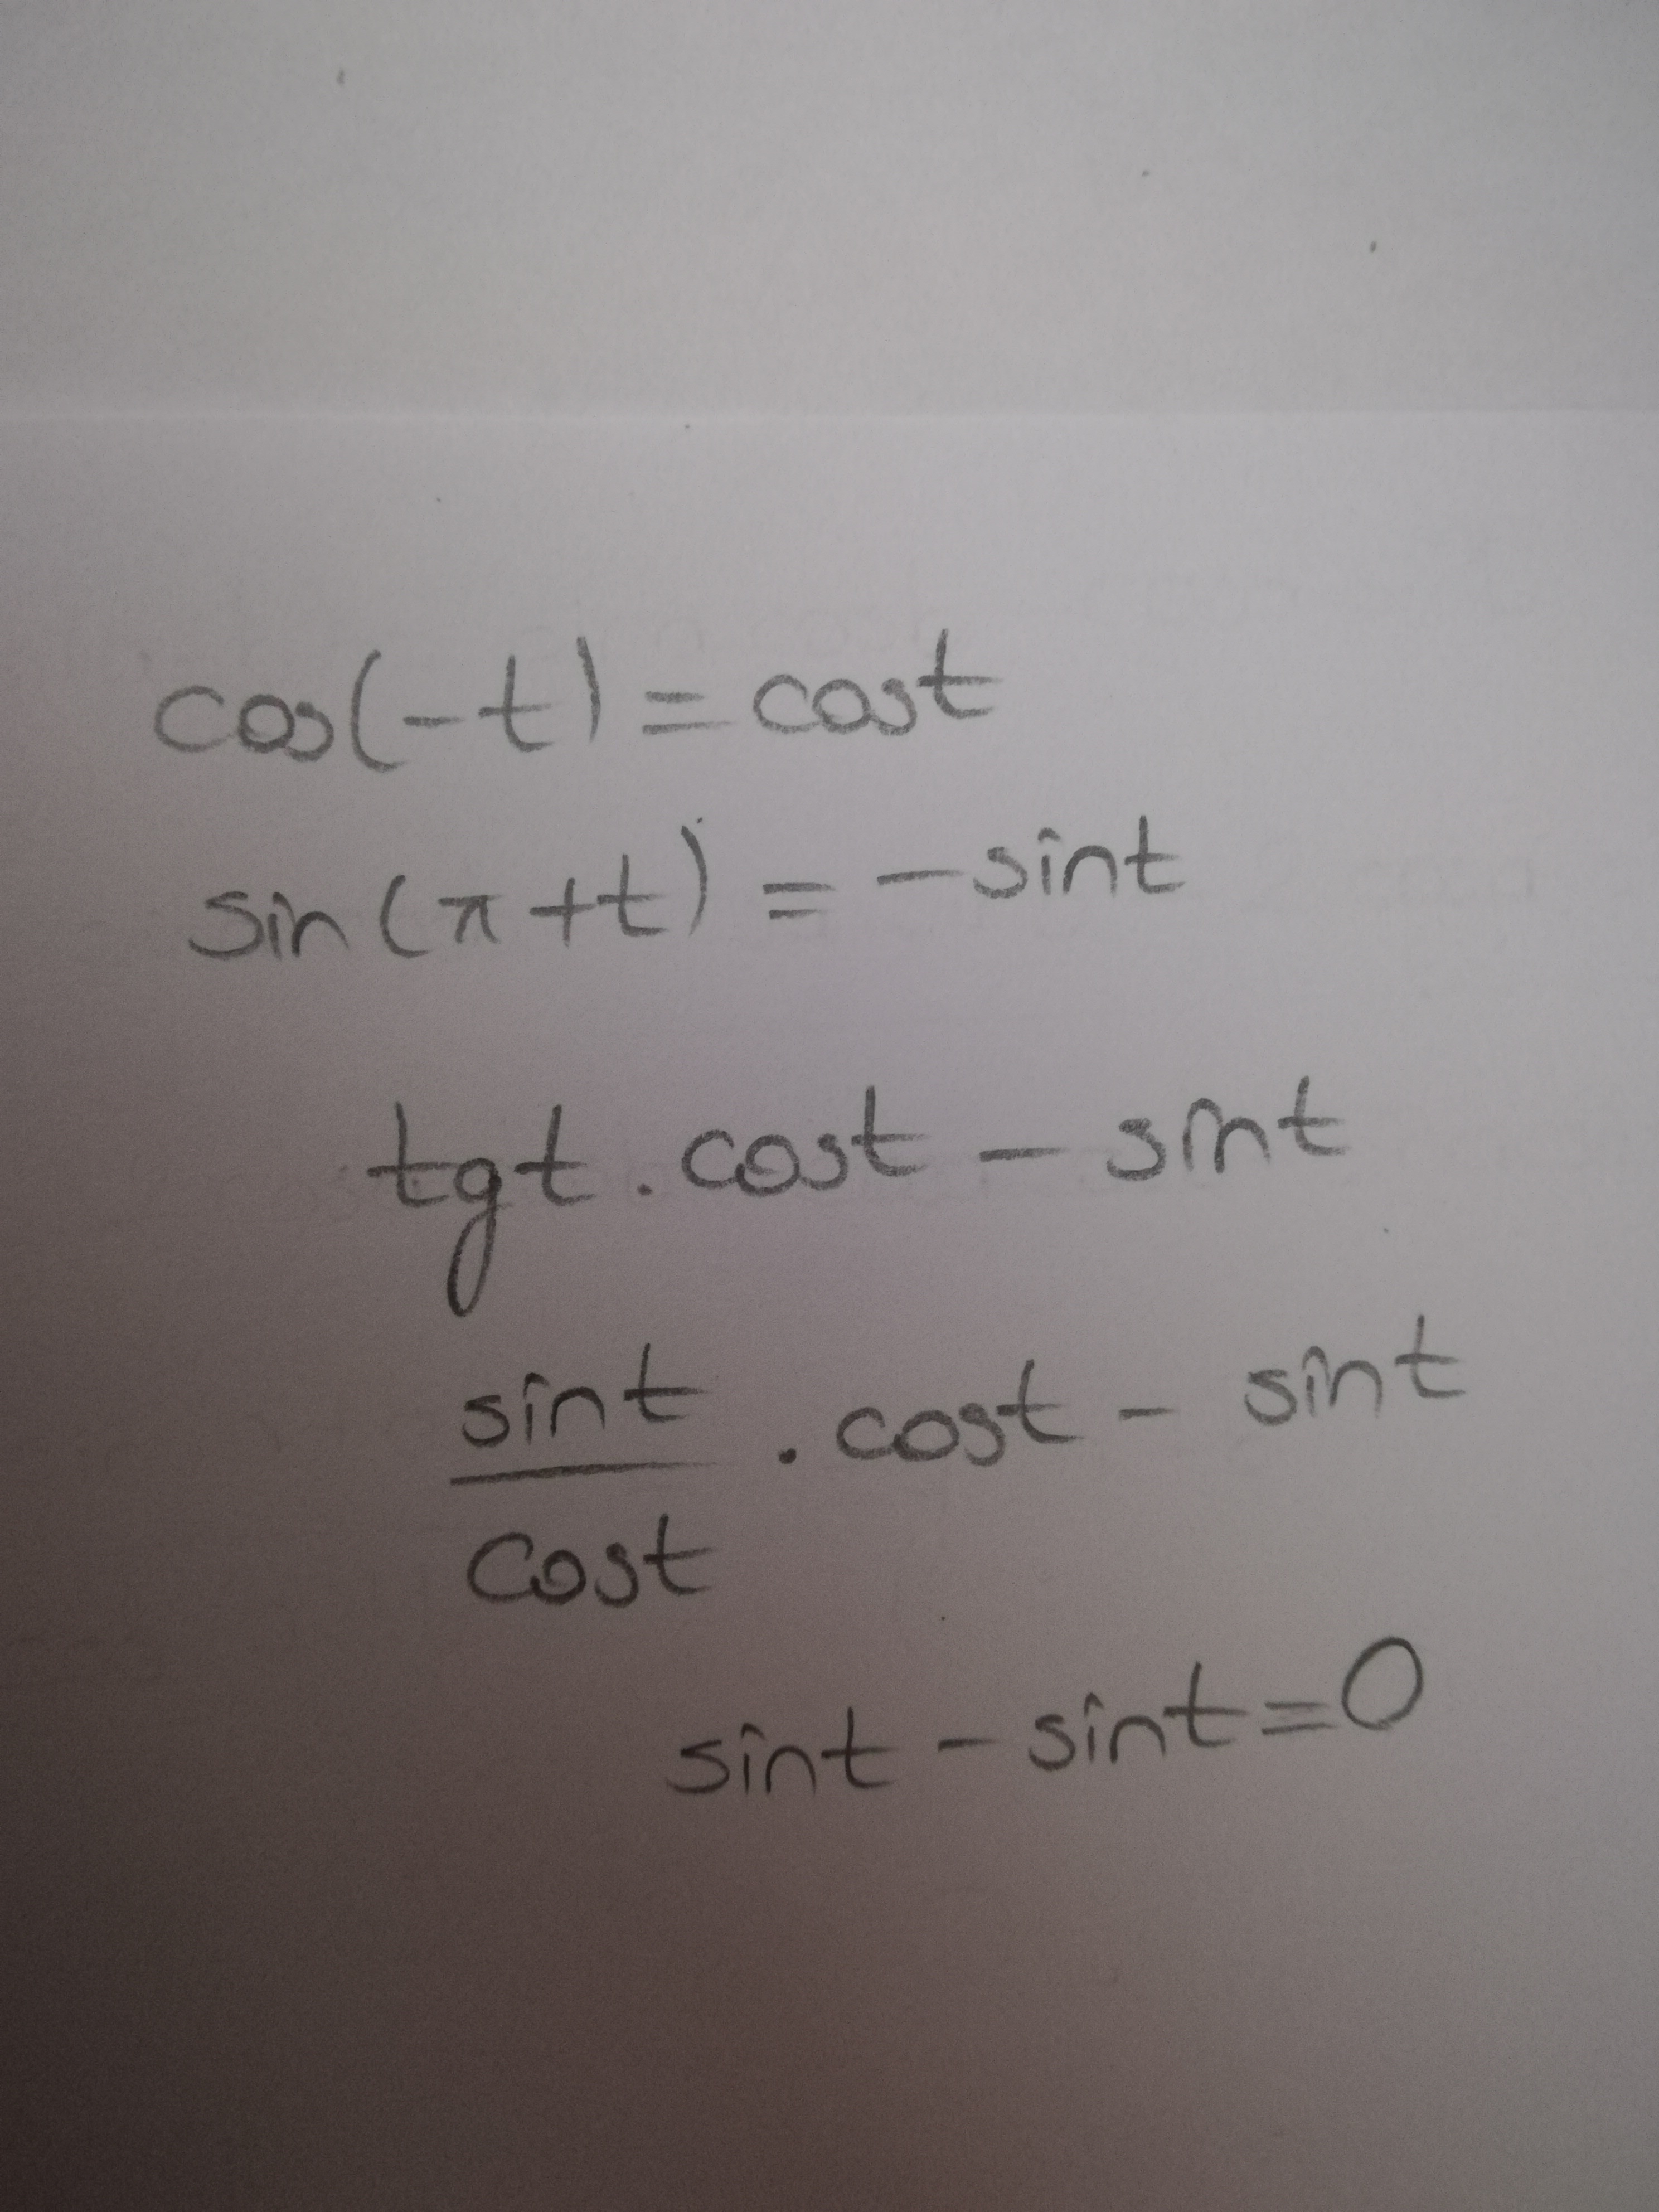 cos(-t) = cost
sin(π+t) = -sint
tgt . cost - sint
sint/cost . cost - sint
sint - sint = 0